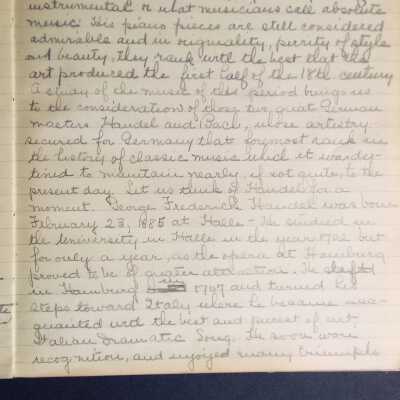 instrumental or what musicians call absolute
music. His piano pieces are still considered
admirable and in originality, purity of style
and beauty, they rank with the best that the
art produced the first half of the 18th century
A study of the music of this period brings us
to the consideration of those two, great German
masters Handel and Bach, whose artistry
secured for Germany that foremost rank in
the history of classic music which it was des-
tined to maintain nearly, if not quite, to the
present day. Let us think of Handel for a
moment. George Frederick Handel was born
February 23, 1885 at Halle - He studied in
the University in Halle in the year 1702 but
for only a year, as the opera at Hamburg
proved to be a greater attraction. He
in Hamburg in 1707 and turned his
steps toward Italy where he became acc-
quainted with the best and purest of art,
Italian Dramatic Song. He soon won
recognition, and enjoyed many triumphs